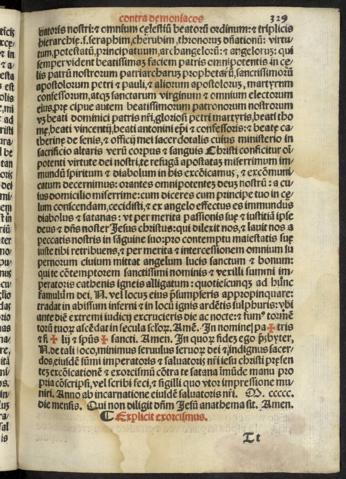 contra demoniacos 329
uatoris nostri: z omnium celestiũ beatorũ ordinum: z triplicis
hierarchie. s. seraphim, cherubim, thronorum: dñationũ: virtu-
tum, potestatũ, principatuum, archangelorũ: z angelorũ: qui
semper vident beatissimaz faciem patris omnipotentis in ce-
lis patrũ nostrorum patriarcharum prophetarũ, sanctissimorũ
apostolorum petri z pauli, z aliorum apostolorum, martyrum
confessorum, atqz sanctarum virginum z omnium electorum
eius. pre cipue autem beatissimorum patronorum nostrorum
vz beati dominici patris nři, gloriosi petri martyris, beati tho
me, beati vincentij, beati antonini epi z confessoris: z beate ca-
therine de senis, z officij mei sacerdotalis cuius ministerio in
sacrificio altaris verũ corpus z sanguis Christi conficitur oi-
potenti virtute dei nostri, te refugã apostataz miserrimum im-
mundũ spiritum z diabolum in his excõicamus, z excõmuni-
catum decernimus: orantes omnipotentez deuz nostrũ: a cu-
ius domicilio miserrime: cum diceres cum principe tuo in ce-
lum conscendam, cecidisti, z ex angelo effectus es immundus
diabolus z satanas: vt per merita passionis sue z iustitiã ipse
deus z dñs noster Jesus christus: qui dilexit nos, z lauit nos a
peccatis nostris in sãguine suo: pro contemptu maiestatis sue
iuste tibi retribuens, z per merita z intercessionem omnium su
pernorum ciuium mittat angelum lucis sanctum z bonum:
qui te cõtemptorem sanctissimi nominis z vexilli summi im-
peratoris cathenis igneis alligatum: quotiescunqz ad hunc
famulũm dei. N. vel locuz eius psumpseris appropinquare:
tradat in abissum inferni z in locũ ignis ardẽtis sulphuris: vbi
ante diẽ extremi iudicij excrucieris die ac nocte: z fumº tormẽ
torũ tuorz ascẽdat in secula sclorz. Amẽ. In nomine pa ✠ tris
z fi ✠ lij z spũs ✠ sancti. Amen. In quorz fidez ego psbyter,
N. de tali loco, minimus seruulus seruorz dei z indignus sacer-
dos, eiusdẽ summi imperatoris z saluatoris nři iesu christi presen
tez excõicationẽ z exorcismũ cõtra te satana imũde manu pro
pria cõscripsi, vel scribi feci, z sigilli quo vtor impressione mu-
niui. Anno ab incarnatione eiusdẽ saluatoris nři. M. ccccc.
die mensis. Qui non diligit dñm Jesũ anathema sit. Amen.
¶ Explicit exorcismus.
Tt